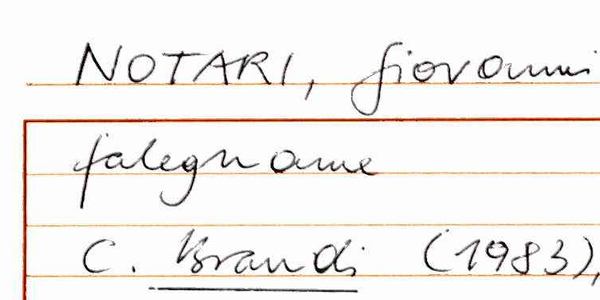 NOTARI, Giovanni
falegname
C. Brandi (1983),